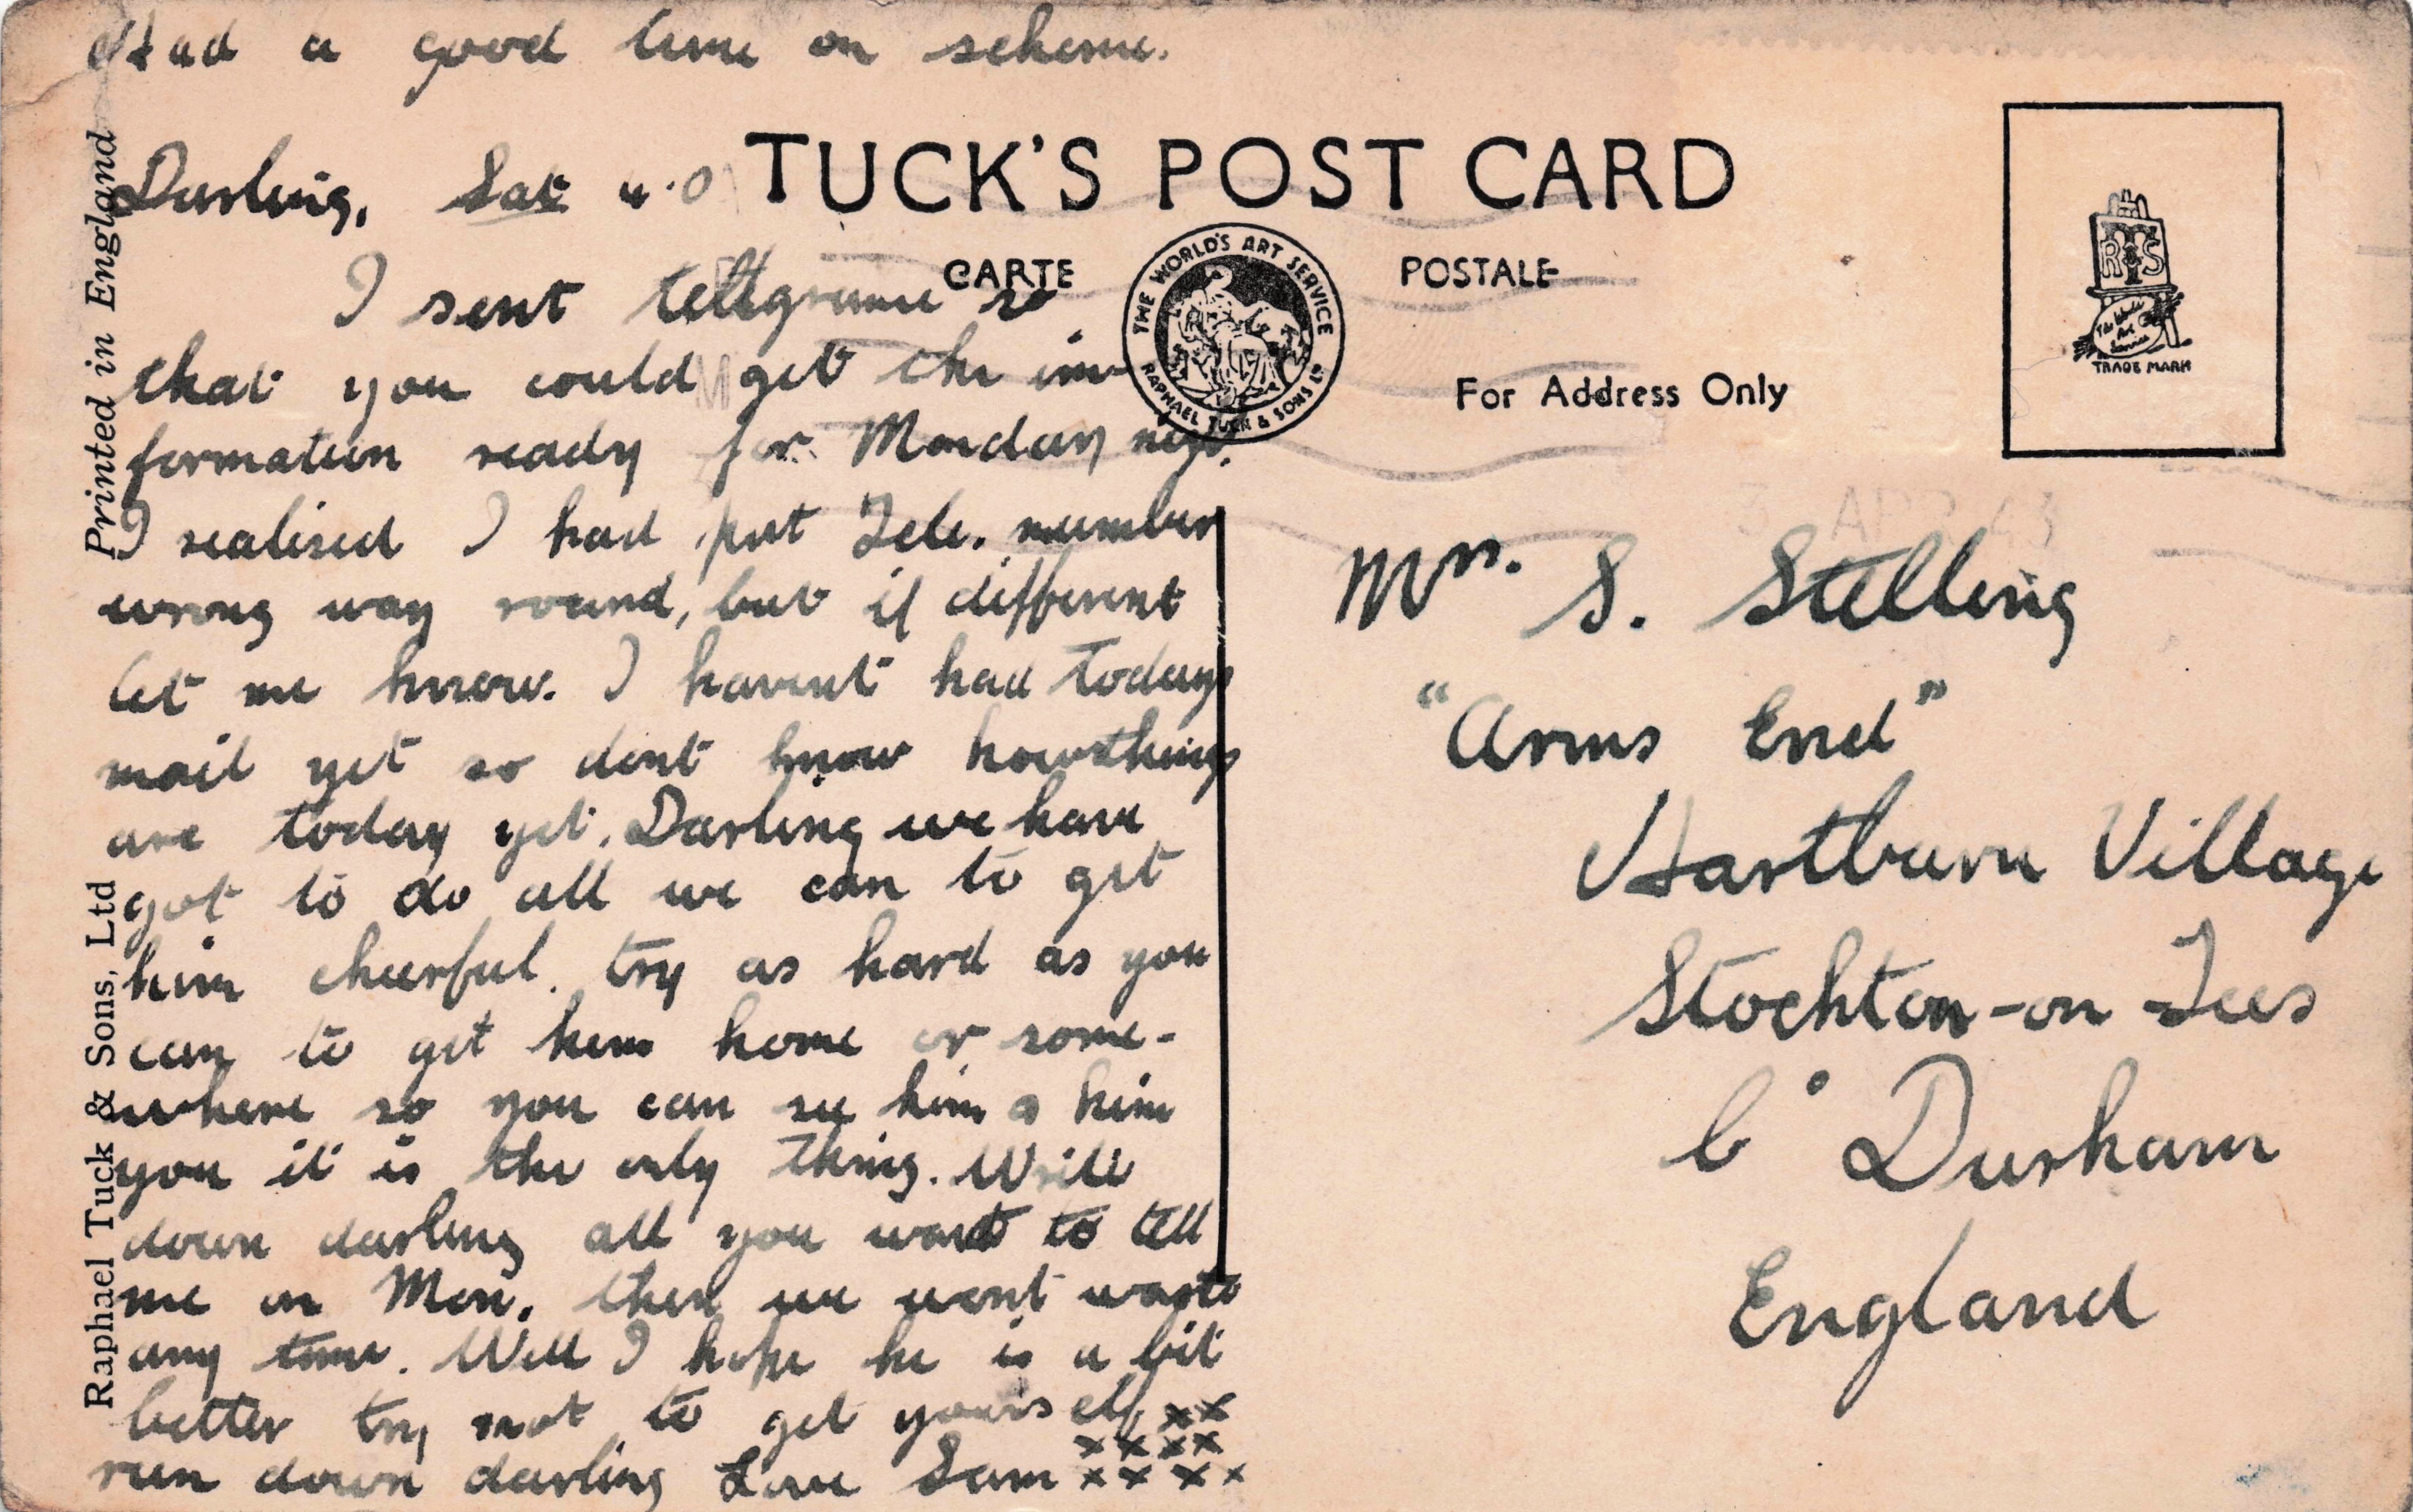 Had a good time on scheme.
Printed in England
Raphael Tuck & Sons, Ltd
TUCK'S POST CARD
CARTE POSTALE
THE WORLD'S ART SERVICE
RAPHAEL TUCK & SONS LD
For Address Only
R T S
The World's
Art
Service
TRADE MARK
Darling, Sat 4.0
I sent telegramme so
that you could get the in-
formation ready for Monday
I realised I had put Tele. number
wrong way round, but if different
let me know. I havent had todays
mail yet so dont know how things
are today yet. Darling we have
got to do all we can to get
him cheerful. try as hard as you
can to get him home or some-
where so you can see him & him
you it is the only thing. Write
down darling all you want to tell
me on Mon. then we wont waste
any time. Well I hope he is a bit
better try not to get yourself xx
xxxx
run down darling Love Sam xxxx
3 APR 43
Mrs. S. Stelling
"Arms End"
Hartburn Village
Stockton-on-Tees
Co Durham
England